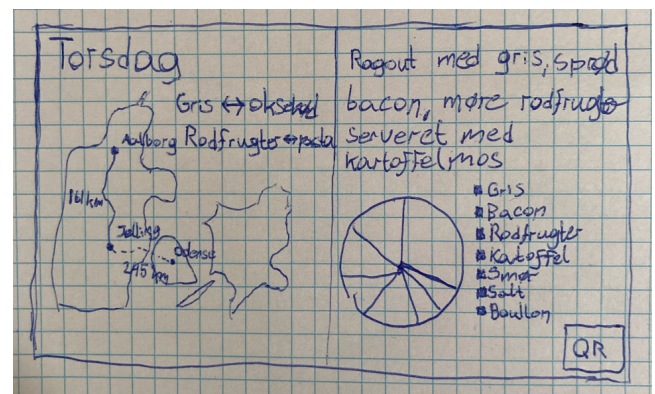 Torsdag
Gris ↔ oksekød
Rodfrugter ↔ pasta
Aalborg
161 km
Jelling
Odense
245 km
Ragout med gris, sprød
bacon, møre rodfrugter
Serveret med
kartoffelmos
Gris
Bacon
Rodfrugter
Kartoffel
Smør
Salt
Bouillon
QR